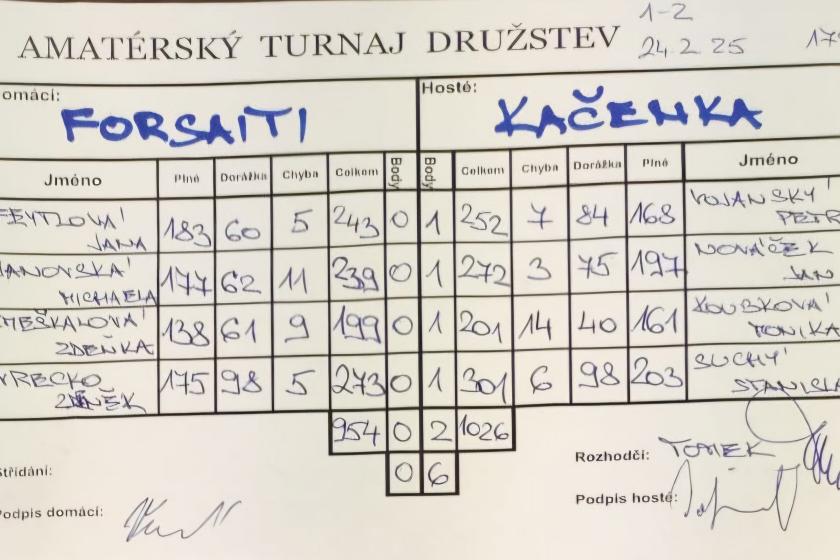 1-2
AMATÉRSKÝ TURNAJ DRUŽSTEV 24.2.25 17
omácí: Hosté:
FORSAITI KAČENKA
Jméno Plné Dorážka Chyba Celkem Body Body Celkem Chyba Dorážka Plné Jméno
FEYTLOVÁ 183 60 5 243 0 1 252 7 84 168 VOJANSKÝ
JANA PETR
ANOVSKÁ 177 62 11 239 0 1 272 3 75 197 NOVÁČEK
MICHAELA JAN
MEŠKALOVÁ 138 61 9 199 0 1 201 14 40 161 KOUBKOVÁ
ZDEŇKA MONIKA
VRECKO 175 98 5 273 0 1 301 6 98 203 SUCHÝ
ZDENĚK STANISLA
954 0 2 1026
0 6
Střídání: Rozhodčí: TOMEK
Podpis domácí: Podpis hosté: